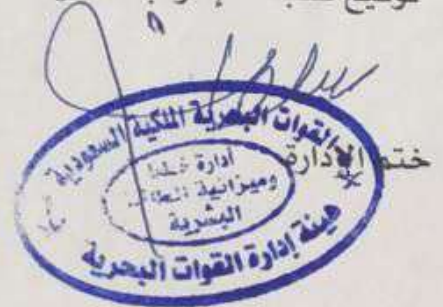 ختم الإدارة
القوات البحرية الملكية السعودية
إدارة خطط
وميزانية الطاقة
البشرية
هيئة إدارة القوات البحرية